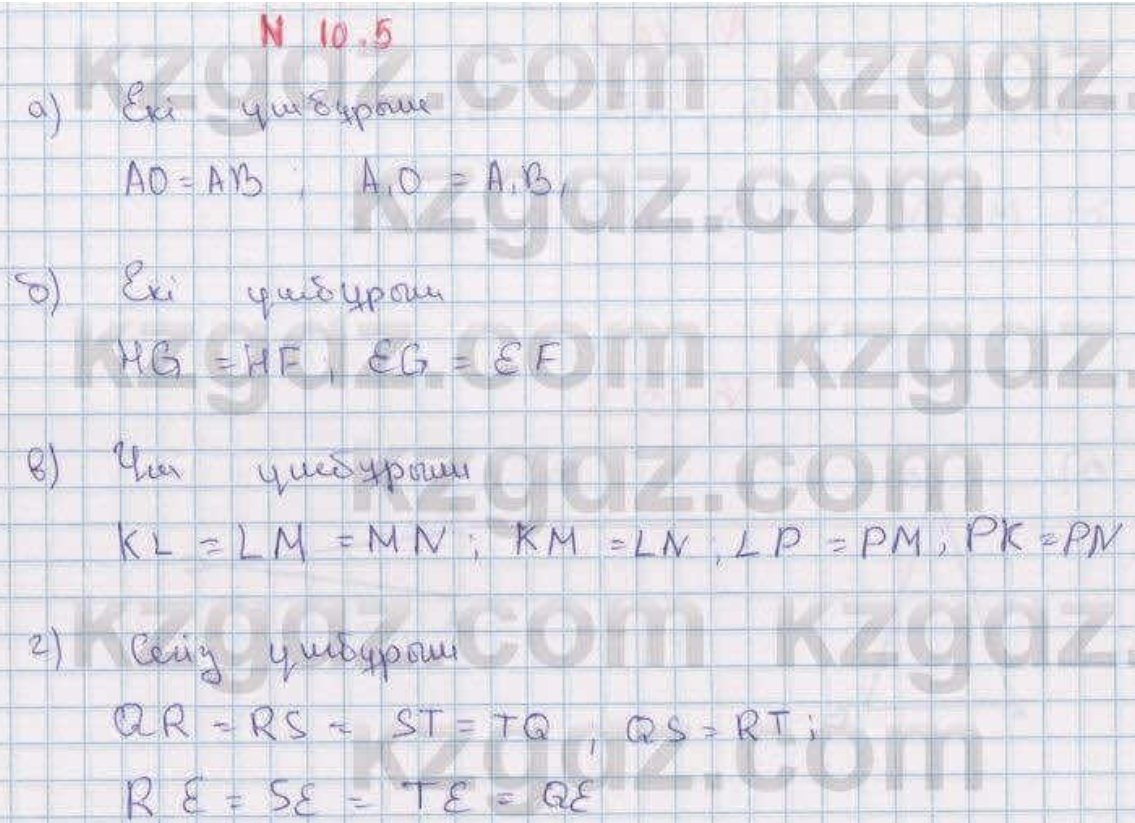 N 10.5
kzgdz.com kzgdz.
а) Екі үшбұрыш
AO = AB ; A₁O = A₁B₁
kzgdz.com
б) Екі үшбұрыш
kzgdz.com kzgdz.
HG = HF ; EG = EF
в) Үш үшбұрыш
kzgdz.com
KL = LM = MN ; KM = LN ; LP = PM ; PK = PN
kzgdz.com kzgdz.
г) Сегіз үшбұрыш
QR = RS = ST = TQ ; QS = RT ;
kzgdz.com
RE = SE = TE = QE